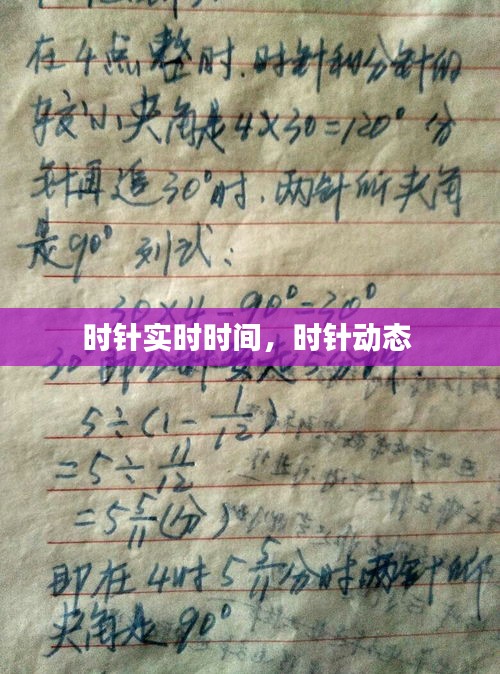 在4点整时.时针和分针的
较小夹角是4×30=120°分
针再追30°时.两针所夹角
是90° 列式:
30×4-90°=30°
时针实时时间，时针动态
30即分针要走5分
5÷(1-1/12)
=5÷11/12
=5 5/11(分)
即在4时5 5/11分时两针所
夹角是90°